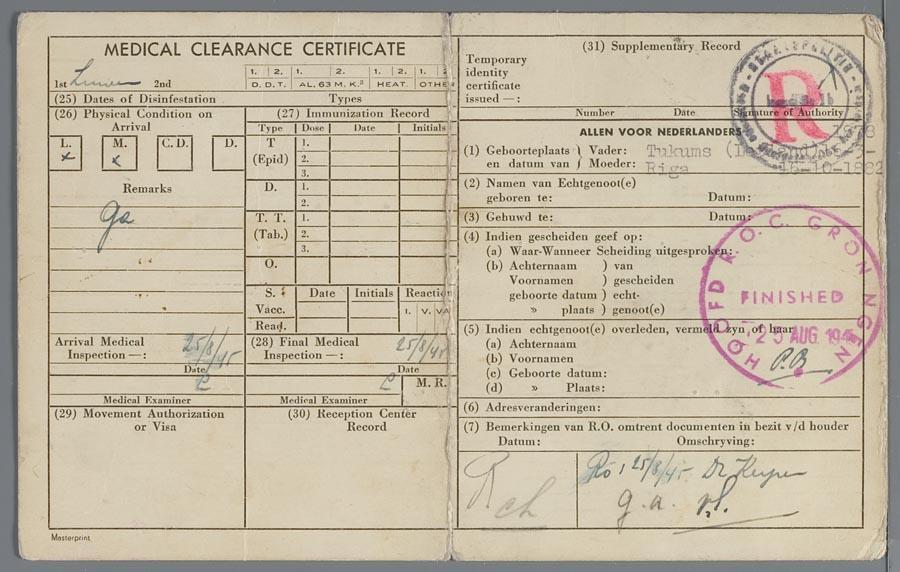 MEDICAL CLEARANCE CERTIFICATE
1st 2nd
1. 2. 1. 2. 1. 2. 1.
D. D. T. AL. 63 M. K.³ HEAT. OTHE
(25) Dates of Disinfestation Types
(26) Physical Condition on
Arrival
L. M. C. D. D.
x x
Remarks
ga
(27) Immunization Record
Type Dose Date Initials
T
(Epid)
1.
2.
3.
D.
1.
2.
T. T.
(Tab.)
1.
2.
3.
O.
S.
Vacc.
Read.
Date Initials Reaction
I. V. VA
Arrival Medical
Inspection —:
25/8/45
Date
Medical Examiner
(28) Final Medical
Inspection —:
25/8/45
Date
M. R.
Medical Examiner
(29) Movement Authorization
or Visa
(30) Reception Center
Record
Masterprint
(31) Supplementary Record
Temporary
identity
certificate
issued —:
Number Date Signature of Authority
R
ALLEN VOOR NEDERLANDERS
(1) Geboorteplaats ) Vader: Tukums
en datum van ) Moeder: Riga 16-10-1882
(2) Namen van Echtgenoot(e)
geboren te: Datum:
(3) Gehuwd te: Datum:
(4) Indien gescheiden geef op:
(a) Waar-Wanneer Scheiding uitgesproken:
(b) Achternaam ) van
Voornamen ) gescheiden
geboorte datum ) echt-
» plaats ) genoot(e)
(5) Indien echtgenoot(e) overleden, vermeld zyn of haar
(a) Achternaam
(b) Voornamen
(c) Geboorte datum:
(d) » Plaats:
HOOFD R.O.C. GRONINGEN
FINISHED
25 AUG. 1945
P.B
(6) Adresveranderingen:
(7) Bemerkingen van R.O. omtrent documenten in bezit v/d houder
Datum: Omschryving:
R ch
Ro, 25/8/45
g. a.